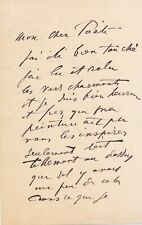 Mon cher Poète
j'ai été bien touché
j'ai lu et relu
les vers charmants
et je suis bien heureux
et fier que ma
peinture ait pu
vous les inspirer
seulement c'est
tellement au dessus
que s'il y avait
un peu de cela
dans ce que je